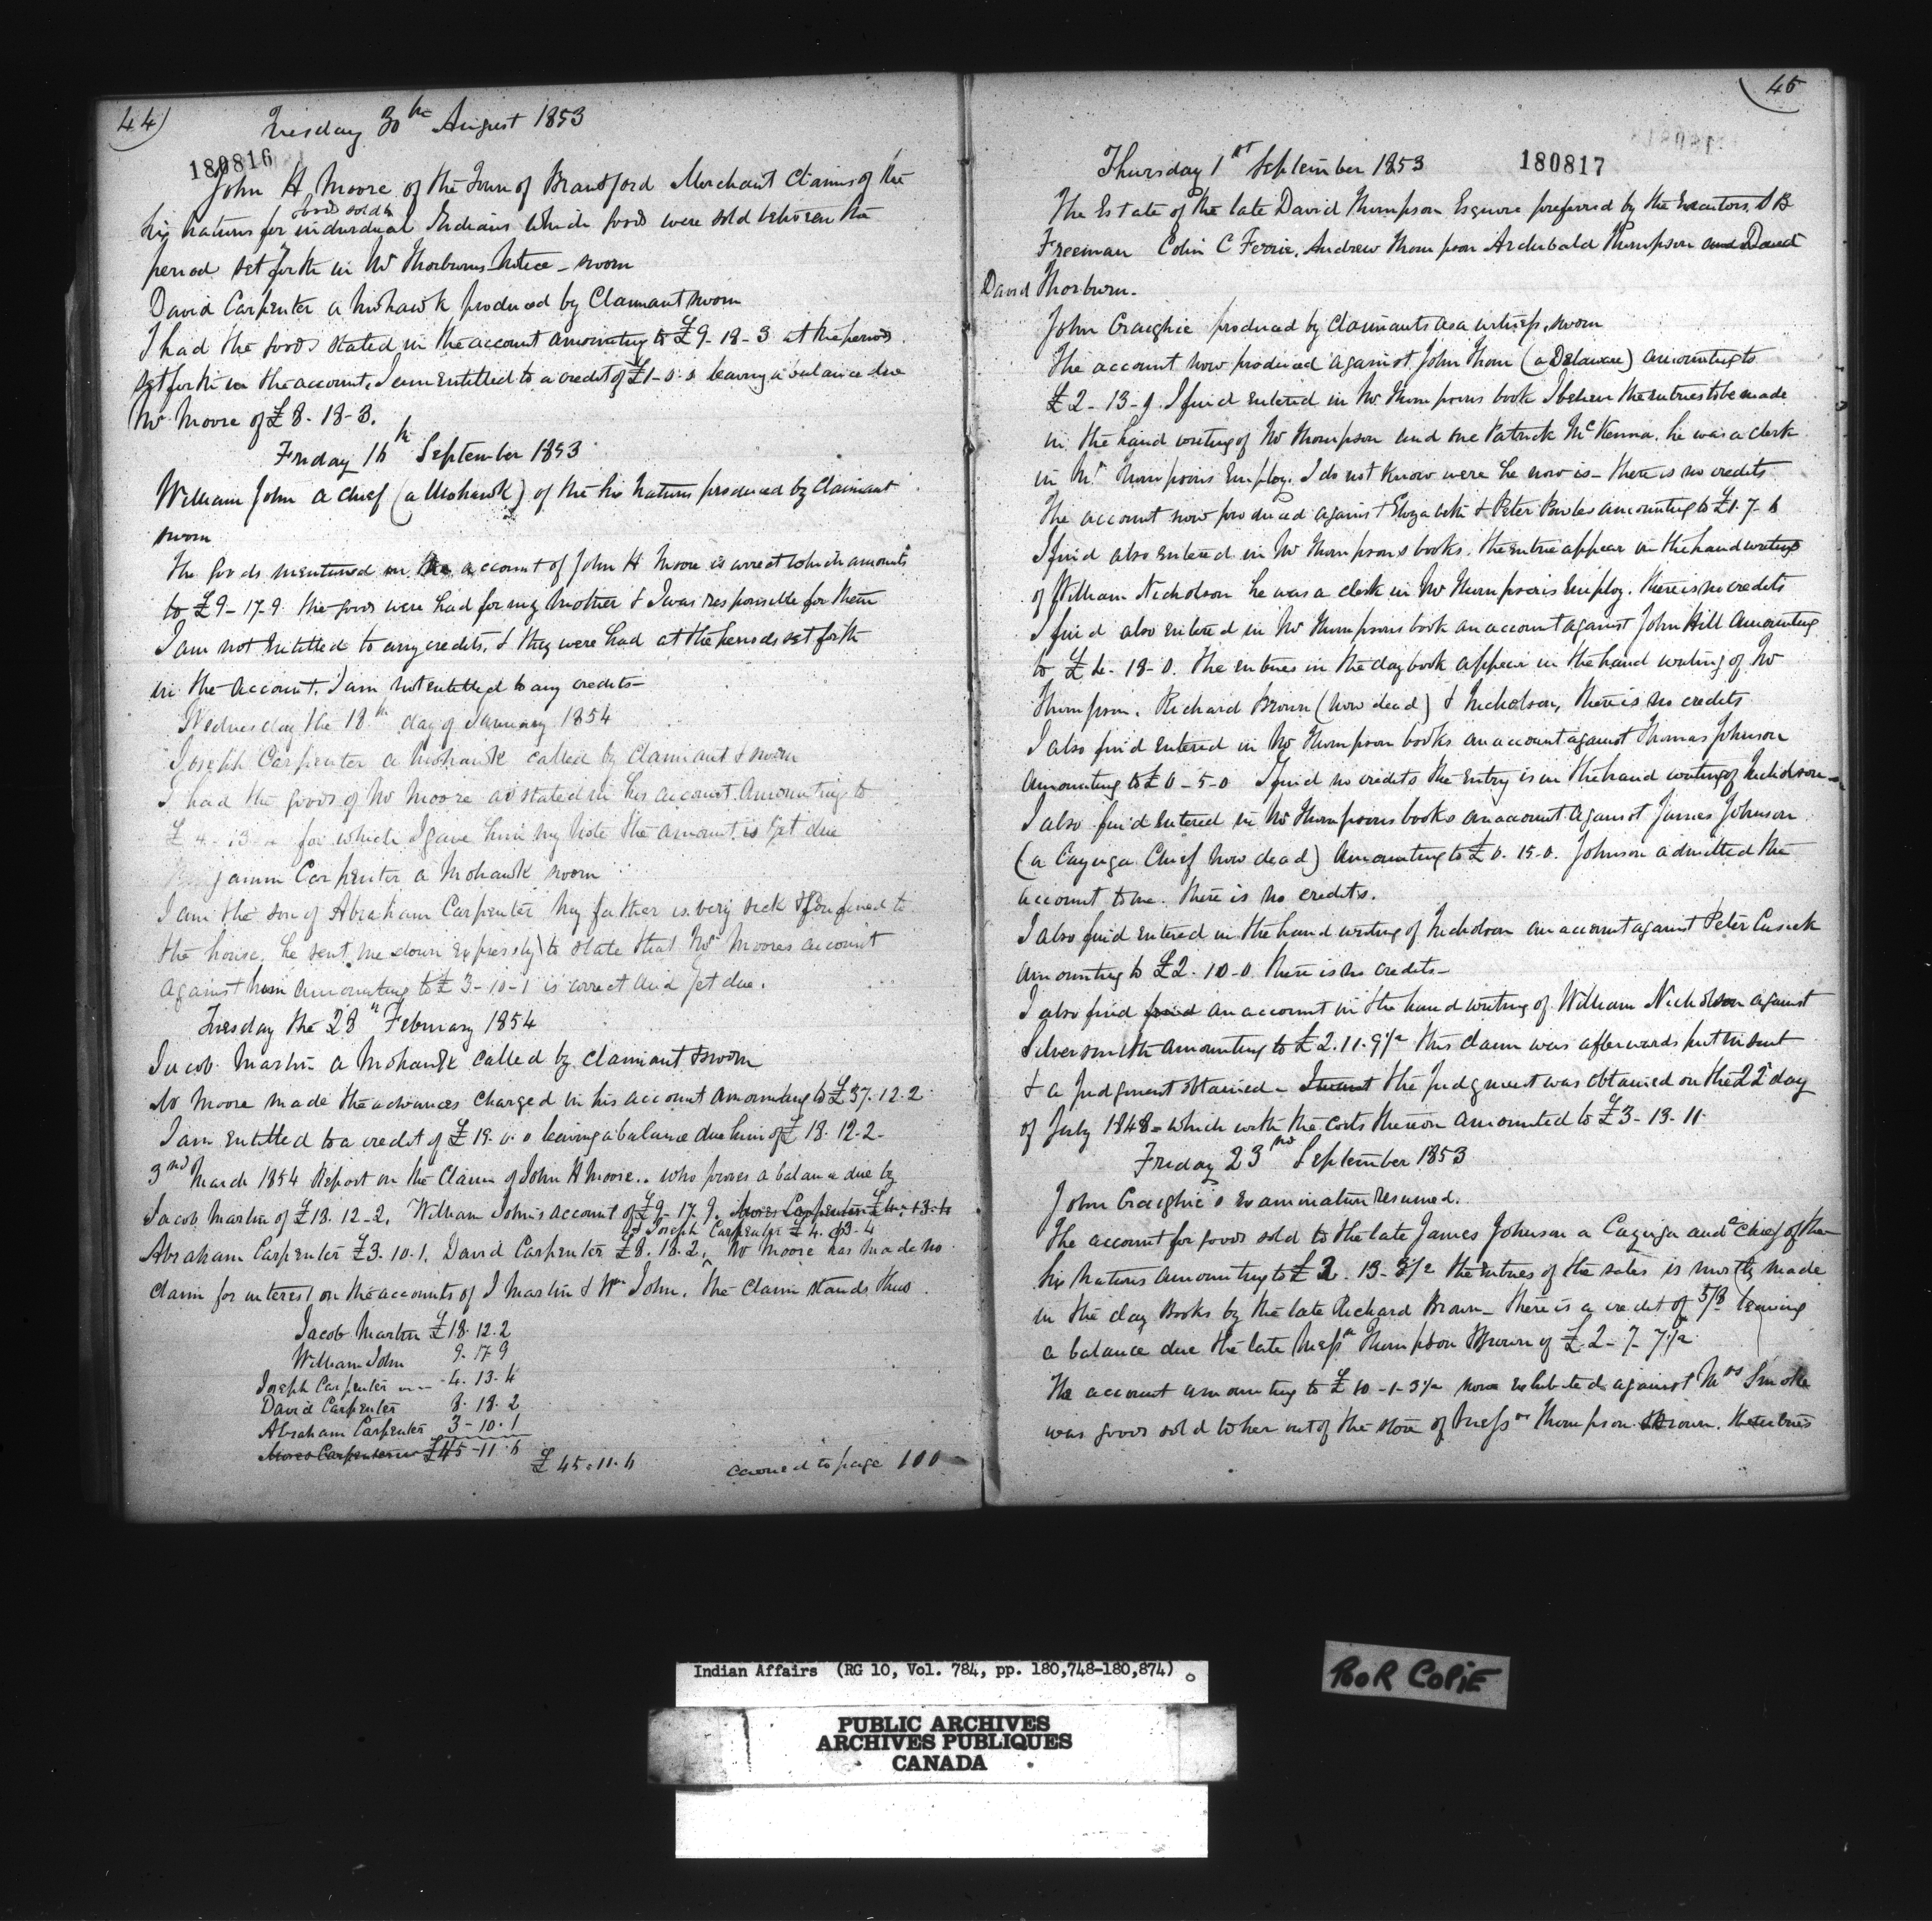 44)
Tuesday 30th August 1853
180816
John H Moore of the Town of Brantford Merchant Claims of the
goods sold to
Six Nations for individual Indians which goods were sold between the
period set forth in Mr Thorburns Notice - sworn
David Carpenter a Mohawk produced by Claimant sworn
I had the goods stated in the account amounting to £9-18-3 at the periods
set forth in the account. I am entitled to a credit of £1-0-0 leaving a balance due
Mr Moore of £8-18-3.
Friday 16th September 1853
William John a Chief (a Mohawk) of the Six Nations produced by Claimant
sworn
The goods mentioned in the account of John H Moore is correct which amounts
to £9-17-9 the goods were had for my mother & I was responsible for them
I am not entitled to any credits, & they were had at the periods set forth
in the account. I am not entitled to any credits-
Wednesday the 18th day of January 1854
Joseph Carpenter a Mohawk called by Claimant & sworn
I had the goods of Mr Moore as stated in his account amounting to
£4-13-4 for which I gave him my Note the amount is yet due
Benjamin Carpenter a Mohawk sworn
I am the son of Abraham Carpenter my father is very sick & confined to
the house. he sent me down expressly to state that Mr Moores account
against him amounting to £3-10-1 is correct and yet due.
Tuesday the 28th February 1854
Jacob Martin a Mohawk called by claimant & sworn
Mr Moore made the advances charged in his account amounting to £37.12.2
I am entitled to a credit of £19.0.0 leaving a balance due him of £18.12.2-
3rd March 1854 Report on the Claim of John H Moore.. who proves a balance due by
Jacob Martin of £18.12-2. William John's account of £9-17-9. Moses Carpenter £4.13.4
Joseph Carpenter £4.13-4
Abraham Carpenter £3.10.1. David Carpenter £8.18.2. Mr Moore has made no
claim for interest on the accounts of J Martin & Wm John. The Claim stands thus
Jacob Martin £18.12.2
William John 9.17.9
Joseph Carpenter 4.13.4
David Carpenter 8.18.2
Abraham Carpenter 3-10.1
Moses Carpenter £45-11.6
£45.11.6 carried to page 100
45
Thursday 1st September 1853
180817
The Estate of the late David Thompson Esquire preferred by the Executors, S B
Freeman Colin C Ferrie, Andrew Thompson Archibald Thompson and David
David Thorburn.
John Craighie produced by Claimants as a witness, sworn
The account now produced against John Thom (a Delaware) amounting to
£2-13-9 I find entered in Mr Thompsons book I believe the entries to be made
in the hand writing of Mr Thompson and one Patrick McKenna. he was a clerk
in Mr Thompsons Employ. I do not know were he now is - there is no credits
The account now produced against Elizabeth & Peter Bowles amounting to £1.7-6
I find also entered in Mr Thompsons books. the entrie appear in the hand writing
of William Nicholson he was a clerk in Mr Thompsons Employ. there is no credits
I find also entered in Mr Thompsons book an account against John Hill amounting
to £4-18-0. the entries in the day book appear in the hand writing of Mr
Thompson. Richard Brown (now dead) & Nicholson, there is no credits
I also find entered in Mr Thompson books an account against Thomas Johnson
amounting to £0-5-0 I find no credits the entry is in the hand writing of Nicholson-
I also find entered in Mr Thompsons books an account against James Johnson
(a Cayuga Chief now dead) amounting to £0.15-0. Johnson admitted the
account to me. there is no credits.
I also find entered in the hand writing of Nicholson an account against Peter Cusick
amounting to £2.10-0 there is no credits-
I also find find an account in the hand writing of William Nicholson against
Silversmith amounting to £2.11.9½ this claim was afterwards put in suit
& a judgment obtained - Interest the judgment was obtained on the 22d day
of July 1848 - which with the costs thereon amounted to £3-13-11
Friday 23rd September 1853
John Craighie's Examination resumed.
The account for goods sold to the late James Johnson a Cayuga and a Chief of the
Six Nations amounting to £2.13-3½ the entries of the sales is mostly made
in the day books by the late Richard Brown - there is a credit of 5/8 leaving
a balance due the late Messrs Thompson & Brown of £2-7-7½
The account amounting to £10-1-3½ now exhibited against Mrs Smoke
was goods sold to her out of the store of Messrs Thompson & Brown. the entries
Indian Affairs (RG 10, Vol. 784, pp. 180,748-180,874)
POOR COPIE
PUBLIC ARCHIVES
ARCHIVES PUBLIQUES
CANADA